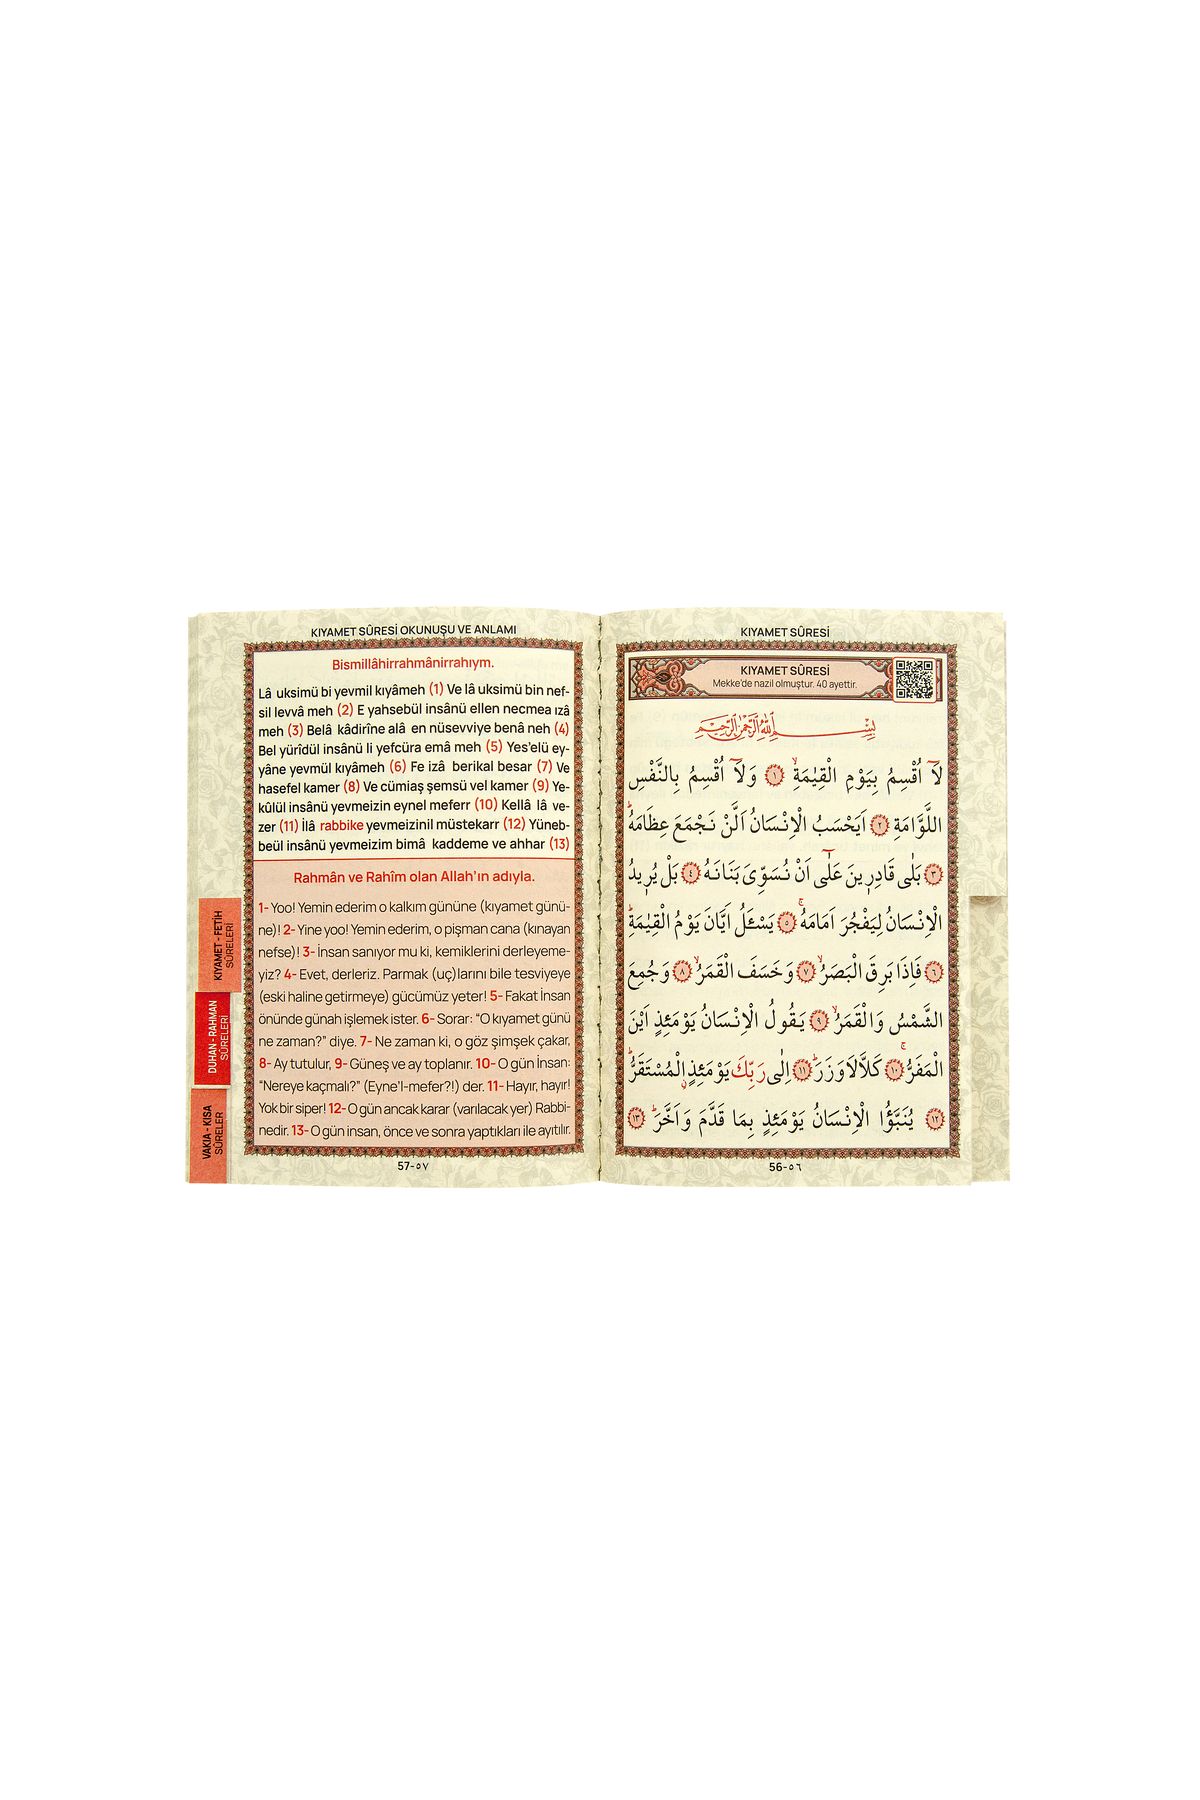 KIYAMET SÛRESİ OKUNUŞU VE ANLAMI
Bismillâhirrahmânirrahıym.
Lâ uksimü bi yevmil kıyâmeh (1) Ve lâ uksimü bin nef-
sil levvâ meh (2) E yahsebül insânü ellen necmea ızâ
meh (3) Belâ kâdirîne alâ en nüsevviye benâ neh (4)
Bel yürîdül insânü li yefcüra emâ meh (5) Yes'elü ey-
yâne yevmül kıyâmeh (6) Fe izâ berikal besar (7) Ve
hasefel kamer (8) Ve cümiaş şemsü vel kamer (9) Ye-
kûlül insânü yevmeizin eynel meferr (10) Kellâ lâ ve-
zer (11) İlâ rabbike yevmeizinil müstekarr (12) Yüneb-
beül insânü yevmeizim bimâ kaddeme ve ahhar (13)
Rahmân ve Rahîm olan Allah'ın adıyla.
1- Yoo! Yemin ederim o kalkım gününe (kıyamet günü-
ne)! 2- Yine yoo! Yemin ederim, o pişman cana (kınayan
nefse)! 3- İnsan sanıyor mu ki, kemiklerini derleyeme-
yiz? 4- Evet, derleriz. Parmak (uç)larını bile tesviyeye
(eski haline getirmeye) gücümüz yeter! 5- Fakat İnsan
önünde günah işlemek ister. 6- Sorar: "O kıyamet günü
ne zaman?" diye. 7- Ne zaman ki, o göz şimşek çakar,
8- Ay tutulur, 9- Güneş ve ay toplanır. 10- O gün İnsan:
"Nereye kaçmalı?" (Eyne'l-mefer?!) der. 11- Hayır, hayır!
Yok bir siper! 12- O gün ancak karar (varılacak yer) Rabbi-
nedir. 13- O gün insan, önce ve sonra yaptıkları ile ayıtılır.
57-٥٧
KIYAMET - FETİH
SÛRELERİ
DUHAN - RAHMAN
SÛRELERİ
VAKIA - KISA
SÛRELER
KIYAMET SÛRESİ
KIYAMET SÛRESİ
Mekke'de nazil olmuştur. 40 ayettir.
بِسْمِ اللّٰهِ الرَّحْمٰنِ الرَّحِيمِ
لَٓا اُقْسِمُ بِيَوْمِ الْقِيٰمَةِۙ ﴿١﴾ وَلَٓا اُقْسِمُ بِالنَّفْسِ
اللَّوَّامَةِ ﴿٢﴾ اَيَحْسَبُ الْاِنْسَانُ اَلَّنْ نَجْمَعَ عِظَامَهُۜ
﴿٣﴾ بَلٰى قَادِرٖينَ عَلٰٓى اَنْ نُسَوِّىَ بَنَانَهُ ﴿٤﴾ بَلْ يُرٖيدُ
الْاِنْسَانُ لِيَفْجُرَ اَمَامَهُۚ ﴿٥﴾ يَسْـَٔلُ اَيَّانَ يَوْمُ الْقِيٰمَةِۜ
﴿٦﴾ فَاِذَا بَرِقَ الْبَصَرُۙ ﴿٧﴾ وَخَسَفَ الْقَمَرُۙ ﴿٨﴾ وَجُمِعَ
الشَّمْسُ وَالْقَمَرُۙ ﴿٩﴾ يَقُولُ الْاِنْسَانُ يَوْمَئِذٍ اَيْنَ
الْمَفَرُّۚ ﴿١٠﴾ كَلَّا لَا وَزَرَۜ ﴿١١﴾ اِلٰى رَبِّكَ يَوْمَئِذٍ الْمُسْتَقَرُّۜ
﴿١٢﴾ يُنَبَّؤُا الْاِنْسَانُ يَوْمَئِذٍ بِمَا قَدَّمَ وَاَخَّرَۜ ﴿١٣﴾
56-٥٦